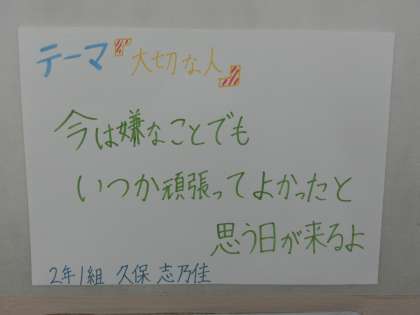 テーマ〝大切な人〟
今は嫌なことでも
いつか頑張ってよかったと
思う日が来るよ
2年1組 久保 志乃佳